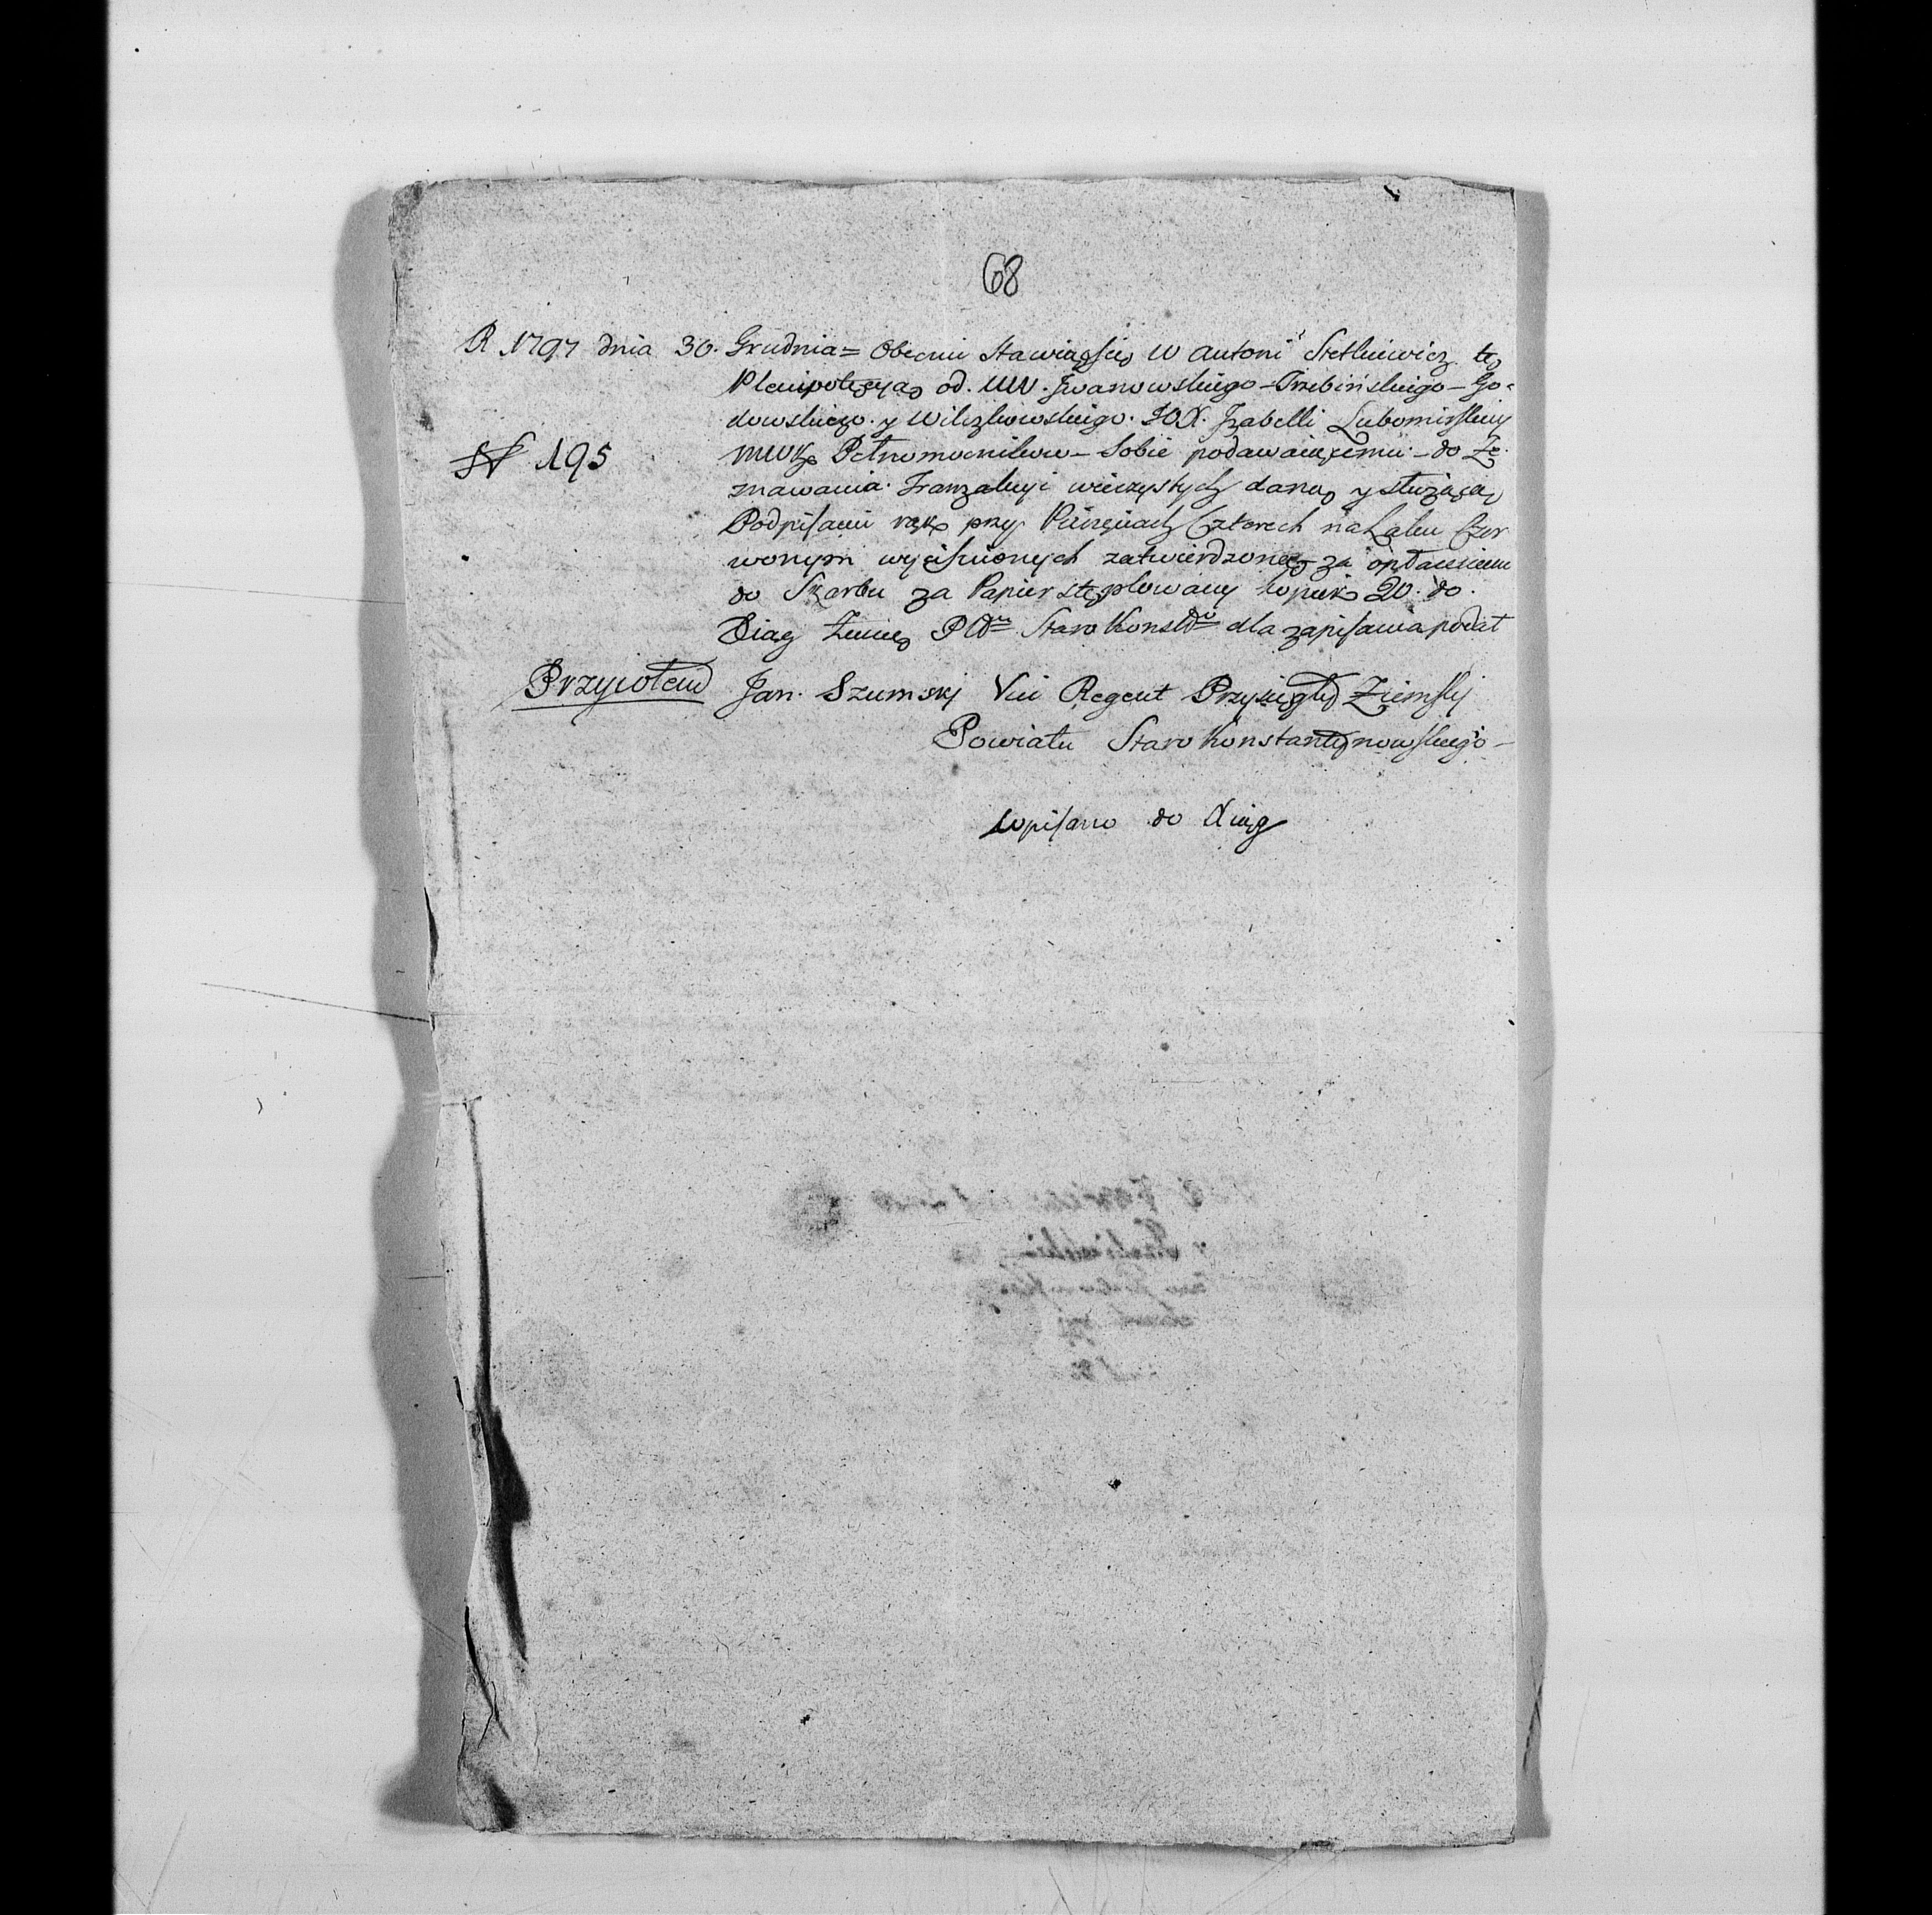 68
R 1797 dnia 30. Grudnia = Obecnie Stawiaiąc się W Antoni tę
Plenipotęcyą od. WW. Jwanowskiego - Trzebińskiego - Go-
dowskiego. y Wilczkowskiego. JOX. Jzabelli Lubomirskiey
N 195
Pełnomocników - Sobie podawaiącemu - do Ze-
znawania. Tranzakcyi wieczystych daną y służącą
Podpisami rąk przy Pieczęciach Czterech na Laku Czer
wonym wyciśnionych zatwierdzoną za opłaceniem
do Skarbu za Papier stęplowany kopiiek 20. do.
Xiąg Ziem: Pttu Staro Konst dla zapisania podał
Przyiołem Jan. Szumski Vice Regent Przysięgły Ziemski
Powiatu Staro Konstantynowskiego -
wpisano do Xiąg